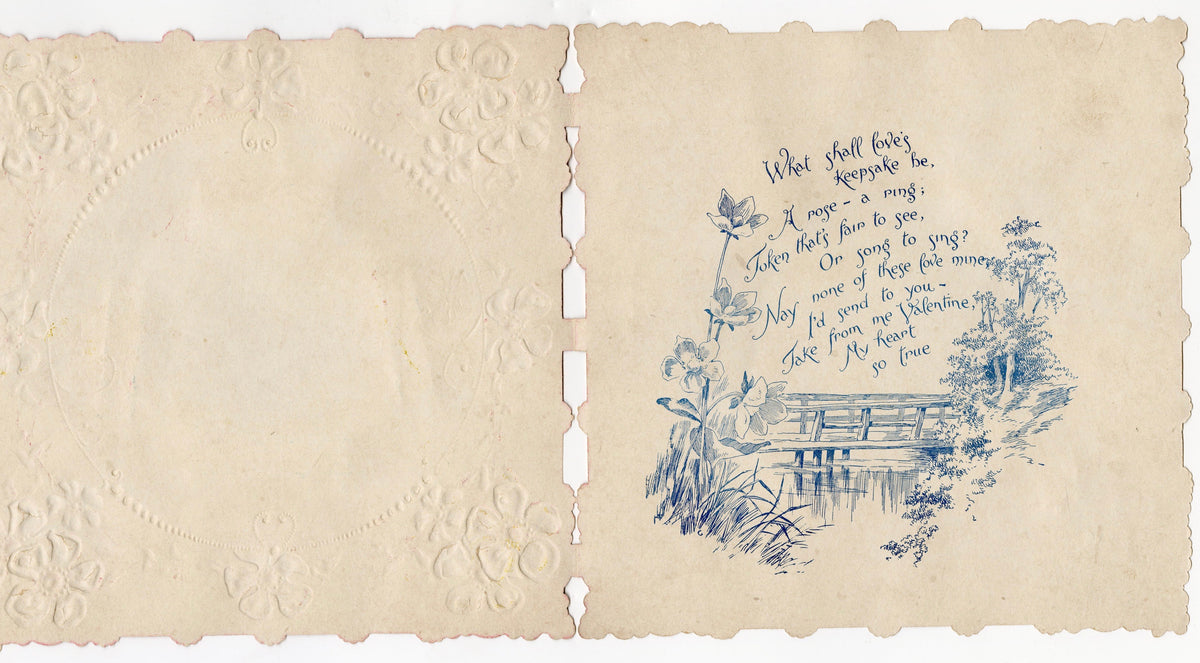 What shall love's
keepsake be,
A rose - a ring;
Token that's fair to see,
Or song to sing?
Nay none of these love mine
I'd send to you -
Take from me Valentine,
My heart
so true